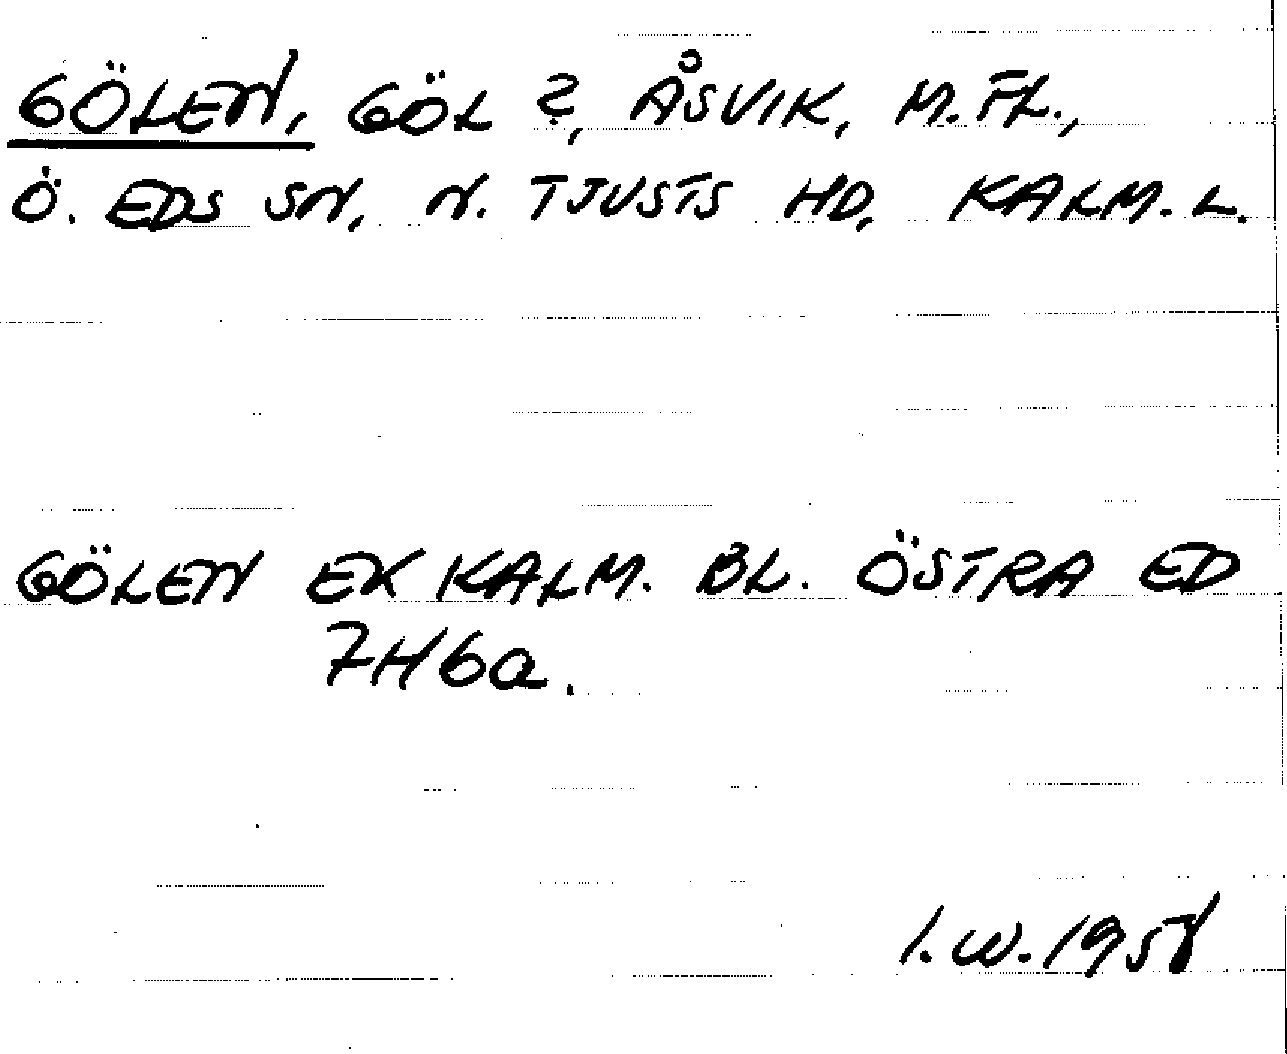 GÖLEN, GÖL ?, ÅSVIK, M.FL.,
Ö. EDS SN, N. TJUSTS HD, KALM. L.
GÖLEN EK KALM. BL. ÖSTRA ED
7H6a.
I.W. 1958